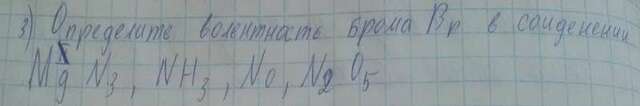 3) Определить волентность брома Br в соиденении
Mg N₃, NH₃, NO, N₂O₅